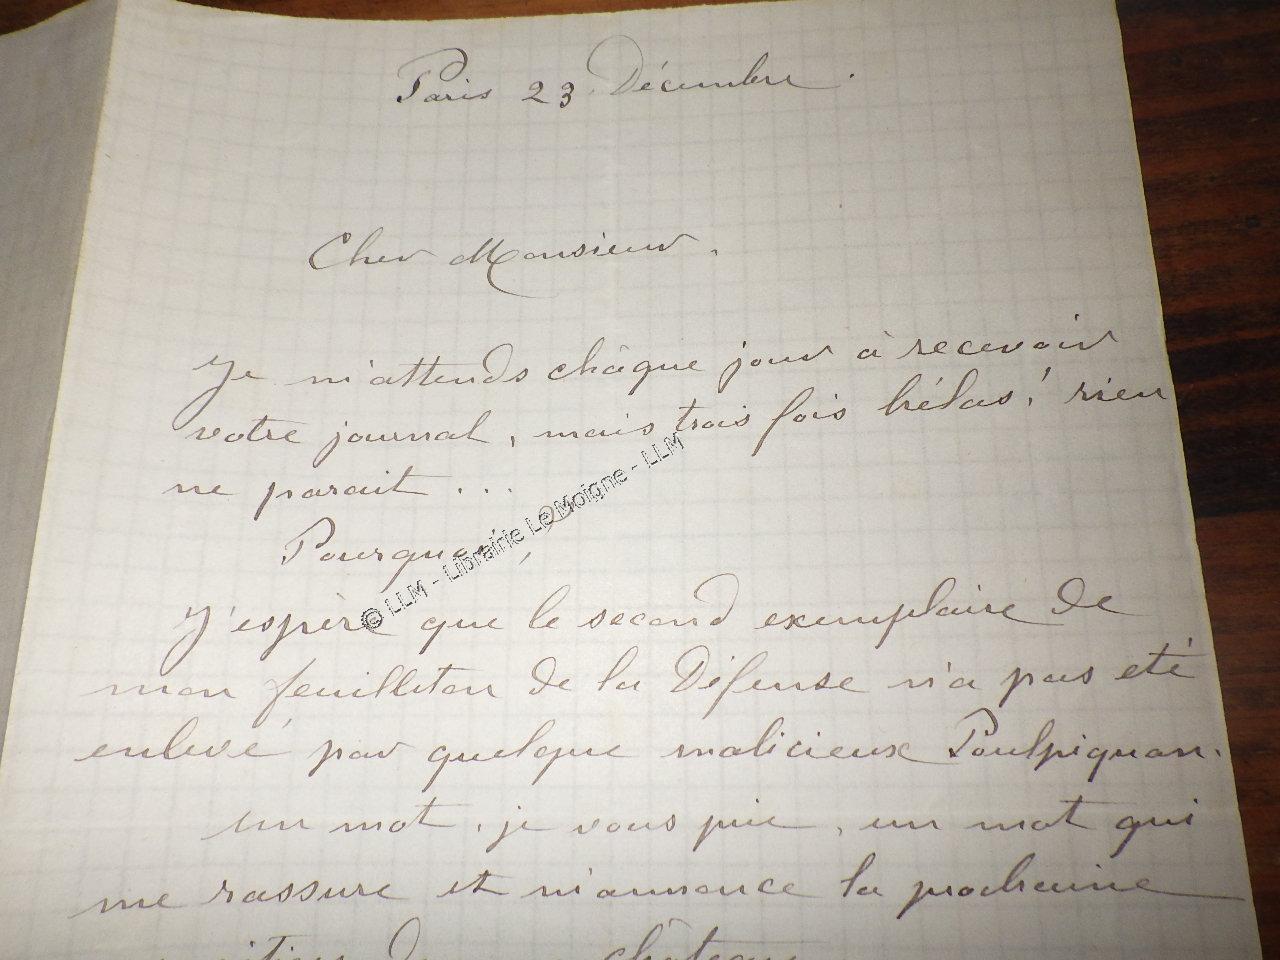 Paris 23 Décembre.
Cher Monsieur,
Je m'attends châque jour à recevoir
votre journal, mais trois fois hélas! rien
ne parait ...
Pourquoi
© LLM - Librairie Le Moigne - LLM
J'espère que le second exemplaire de
mon feuilleton de la Défense n'a pas eté
enlevé par quelque malicieux Poulpiquan.
un mot, je vous prie, un mot qui
me rassure et m'annonce la prochaine
château